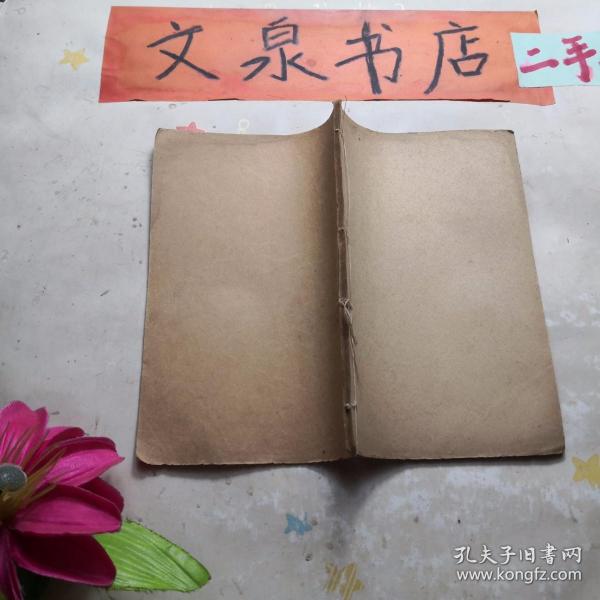 文泉书店
二手
孔夫子旧書网
www.kongfz.com